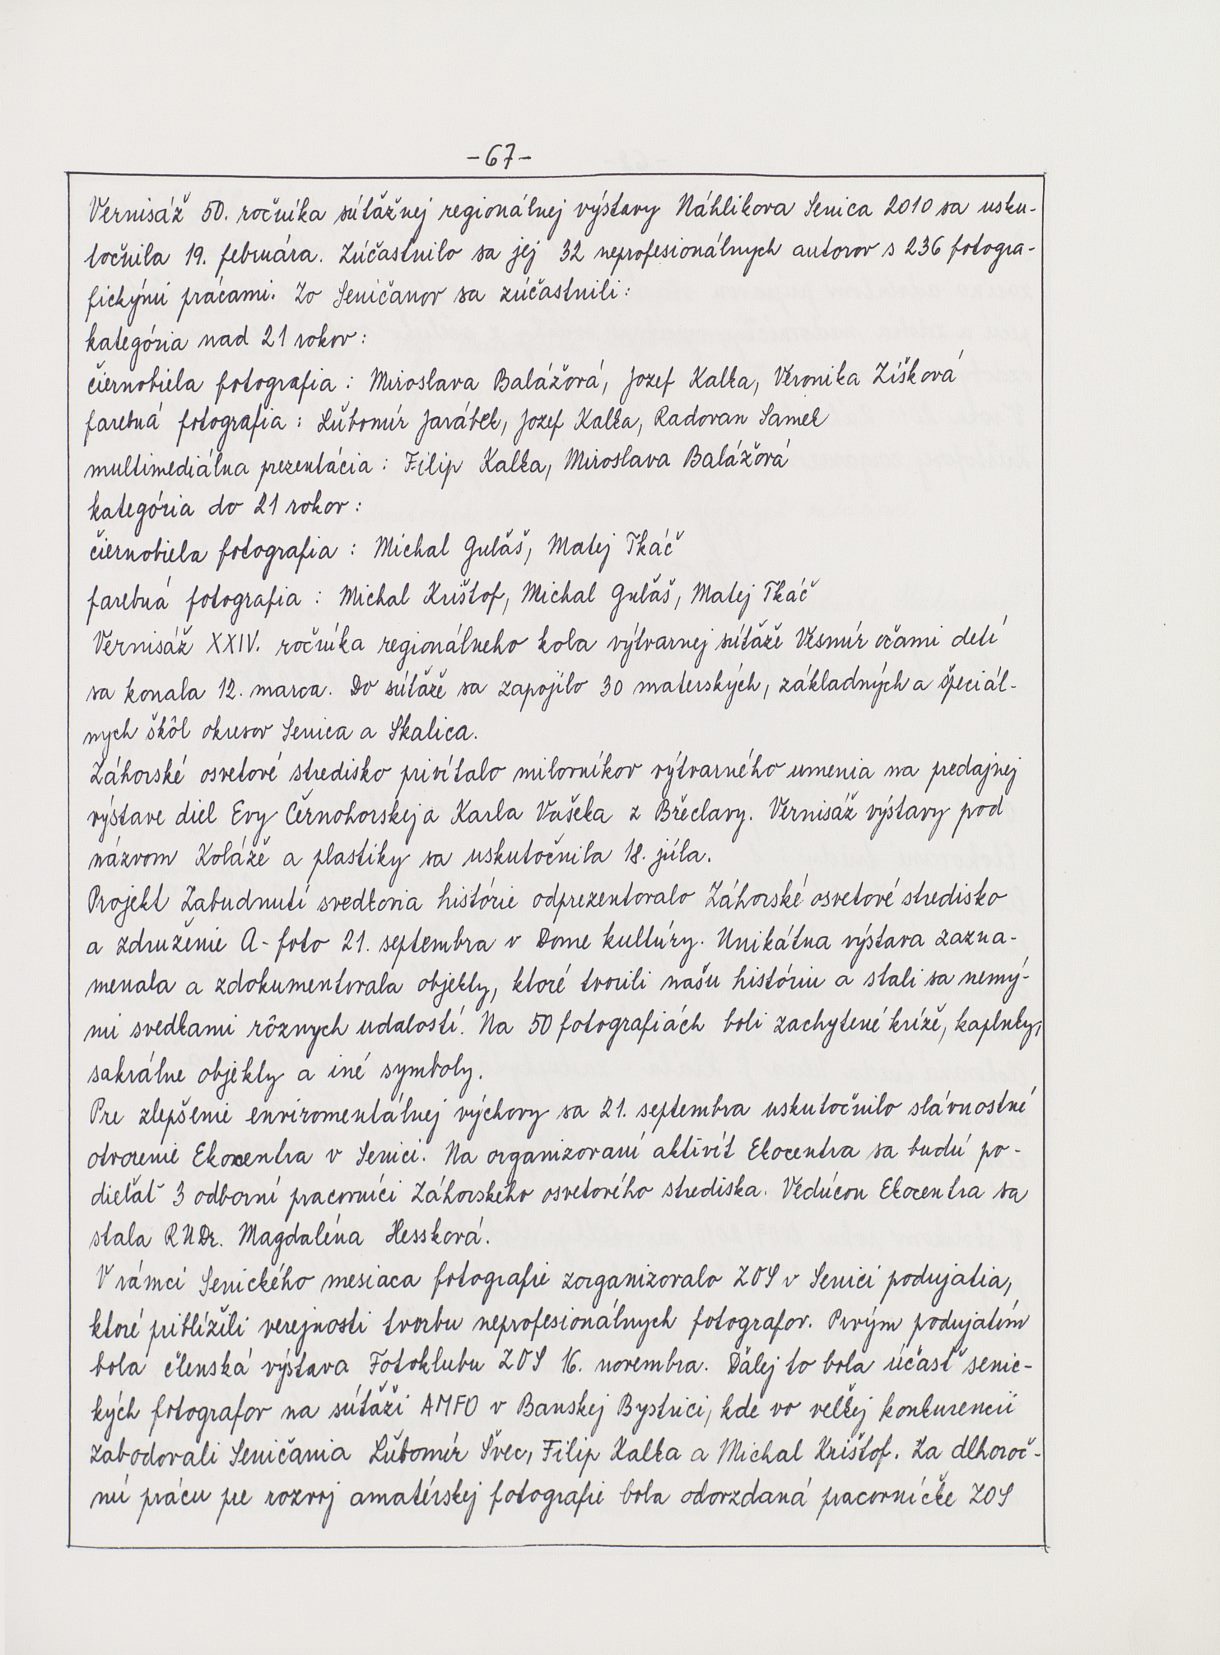 -67-
Vernisáž 50. ročníka súťažnej regionálnej výstavy Náhlikova Senica 2010 sa usku-
točnila 19. februára. Zúčastnilo sa jej 32 neprofesionálnych autorov s 236 fotogra-
fickými prácami. Zo Seničanov sa zúčastnili:
kategória nad 21 rokov:
čiernobiela fotografia: Miroslava Balážová, Jozef Kalka, Veronika Zíšková
farebná fotografia: Ľubomír Jarábek, Jozef Kalka, Radovan Samek
multimediálna prezentácia: Filip Kalka, Miroslava Balážová
kategória do 21 rokov:
čiernobiela fotografia: Michal Guľáš, Matej Tkáč
farebná fotografia: Michal Krištof, Michal Guľáš, Matej Tkáč
Vernisáž XXIV. ročníka regionálneho kola výtvarnej súťaže Vesmír očami detí
sa konala 12. marca. Do súťaže sa zapojilo 30 materských, základných a špeciál-
nych škôl okresov Senica a Skalica.
Záhorské osvetové stredisko privítalo milovníkov výtvarného umenia na predajnej
výstave diel Evy Černohorskej a Karla Vašeka z Břeclavy. Vernisáž výstavy pod
názvom Koláže a plastiky sa uskutočnila 18. júla.
Projekt Zabudnutí svedkovia histórie odprezentovalo Záhorské osvetové stredisko
a združenie A-foto 21. septembra v Dome kultúry. Unikátna výstava zazna-
menala a zdokumentovala objekty, ktoré tvorili našu históriu a stali sa nemý-
mi svedkami rôznych udalostí. Na 50 fotografiách boli zachytené kríže, kaplnky,
sakrálne objekty a iné symboly.
Pre zlepšenie enviromentálnej výchovy sa 21. septembra uskutočnilo slávnostné
otvorenie Ekocentra v Senici. Na organizovaní aktivít Ekocentra sa budú po-
dieľať 3 odborní pracovníci Záhorského osvetového strediska. Vedúcou Ekocentra sa
stala RNDr. Magdaléna Hessková.
V rámci Senického mesiaca fotografie zorganizovalo ZOS v Senici podujatia,
ktoré priblížili verejnosti tvorbu neprofesionálnych fotografov. Prvým podujatím
bola členská výstava Fotoklubu ZOS 16. novembra. Ďalej to bola účasť senic-
kých fotografov na súťaži AMFO v Banskej Bystrici, kde vo veľkej konkurencii
zabodovali Seničania Ľubomír Švec, Filip Kalka a Michal Krištof. Za dlhoroč-
nú prácu pre rozvoj amatérskej fotografie bola odovzdaná pracovníčke ZOS